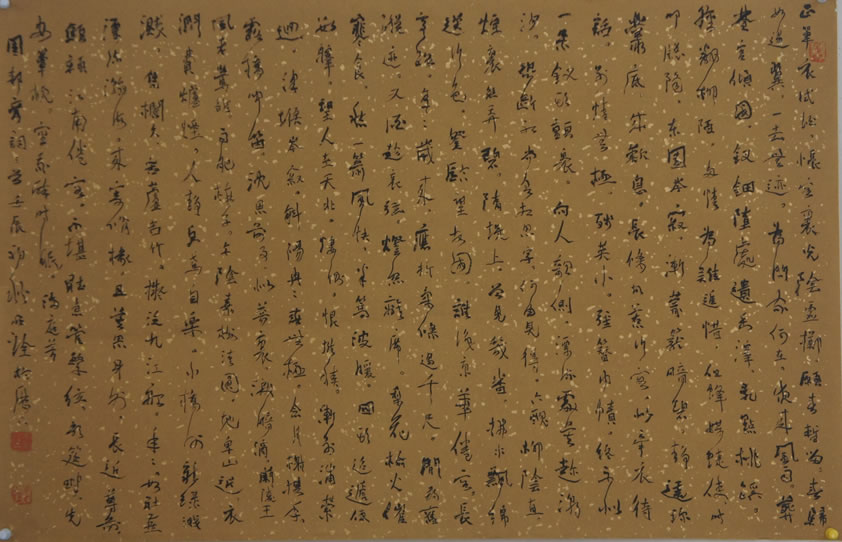 正單衣試酒恨客裏光陰虛擲願春暫留春歸
如過翼一去無跡為問家何在夜來風雨葬
楚宮傾國釵鈿墮處遺香澤亂點桃蹊
輕翻柳陌多情為誰追惜但蜂媒蝶使時
叩窗隔東園岑寂漸蒙籠暗碧靜遶珍
叢底成歎息長條故惹行客似牽衣待
話別情無極殘英小強簪巾幘終不似
一朵釵頭顫裊向人欹側漂流處莫趁潮
汐恐斷紅尚有相思字何由見得六醜柳陰直
煙裏絲絲弄碧隋堤上曾見幾番拂水飄綿
送行色登臨望故國誰識京華倦客長
亭路年去歲來應折柔條過千尺閒尋舊
蹤跡又酒趁哀弦燈照離席梨花榆火催
寒食愁一箭風快半篙波暖回頭迢遞便
數驛望人在天北悽惻恨堆積漸別浦縈
迴津堠岑寂斜陽冉冉春無極念月榭攜手
露橋聞笛沈思前事似夢裏淚暗滴蘭陵王
風老鶯雛雨肥梅子午陰嘉樹清圓地卑山近衣
潤費爐煙人靜烏鳶自樂小橋外新綠濺
濺憑欄久黃蘆苦竹擬泛九江船年年如社燕
漂流瀚海來寄修椽且莫思身外長近尊前
憔悴江南倦客不堪聽急管繁絃歌筵畔先
安簟枕容我醉時眠滿庭芳
周邦彥詞壬辰初秋